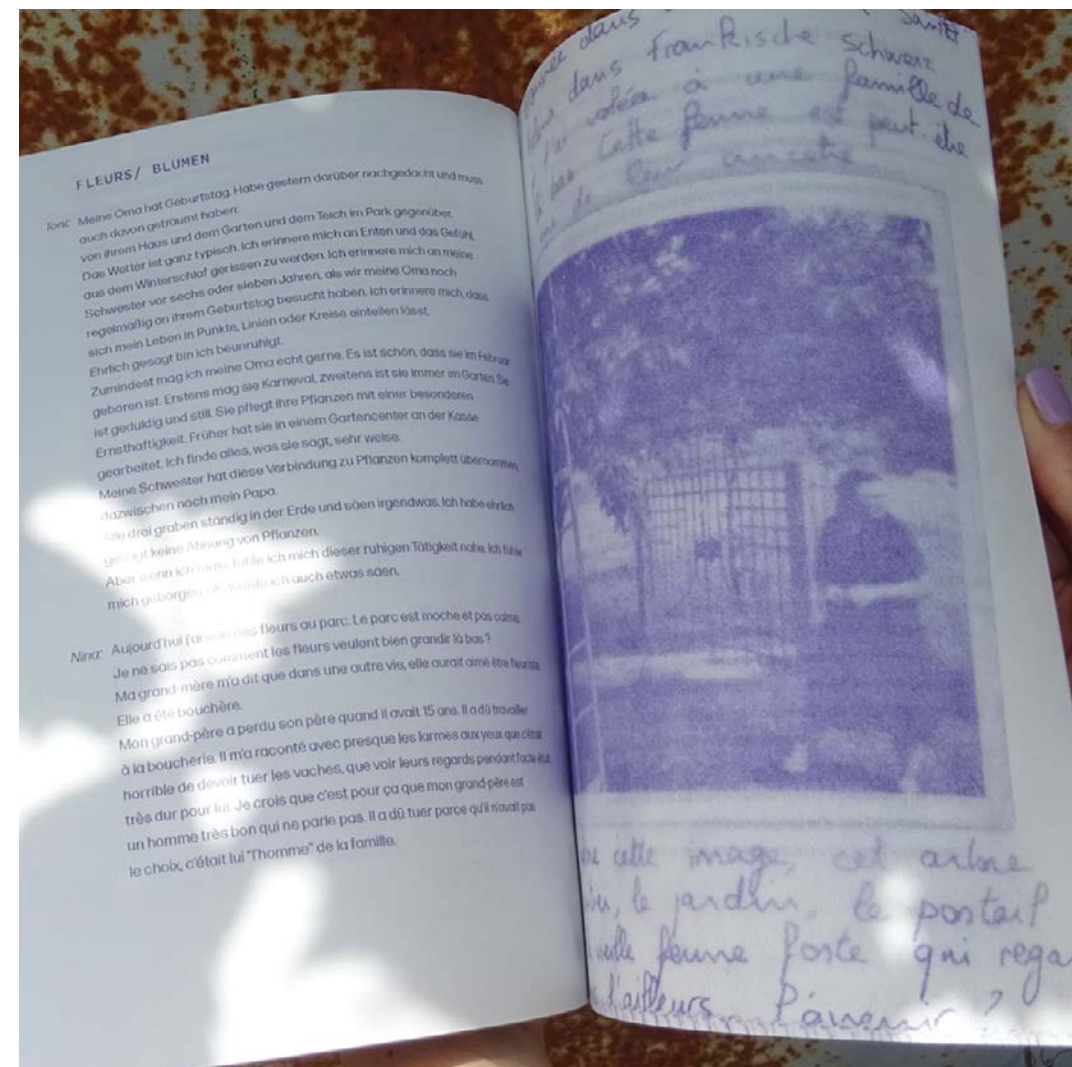 FLEURS/ BLUMEN
Toni: Meine Oma hat Geburtstag. Habe gestern darüber nachgedacht und muss
auch davon geträumt haben:
von ihrem Haus und dem Garten und dem Teich im Park gegenüber.
Das Wetter ist ganz typisch. Ich erinnere mich an Enten und das Gefühl,
aus dem Winterschlaf gerissen zu werden. Ich erinnere mich an meine
Schwester vor sechs oder sieben Jahren, als wir meine Oma noch
regelmäßig an ihrem Geburtstag besucht haben. Ich erinnere mich, dass
sich mein Leben in Punkte, Linien oder Kreise einteilen lässt.
Ehrlich gesagt bin ich beunruhigt.
Zumindest mag ich meine Oma echt gerne. Es ist schön, dass sie im Februar
geboren ist. Erstens mag sie Karneval, zweitens ist sie immer im Garten. Sie
ist geduldig und still. Sie pflegt ihre Pflanzen mit einer besonderen
Ernsthaftigkeit. Früher hat sie in einem Gartencenter an der Kasse
gearbeitet. Ich finde alles, was sie sagt, sehr weise.
Meine Schwester hat diese Verbindung zu Pflanzen komplett übernommen,
dazwischen noch mein Papa.
Alle drei graben ständig in der Erde und säen irgendwas. Ich habe ehrlich
gesagt keine Ahnung von Pflanzen.
Aber wenn ich fühle ich mich dieser ruhigen Tätigkeit nahe. Ich fühle
mich geborgen, als würde ich auch etwas säen.
Nina: Aujourd'hui j'ai vu des fleurs au parc. Le parc est moche et pas calme.
Je ne sais pas comment les fleurs veulent bien grandir là bas ?
Ma grand-mère m'a dit que dans une autre vie, elle aurait aimé être fleuriste.
Elle a été bouchère.
Mon grand-père a perdu son père quand il avait 15 ans. Il a dû travailler
à la boucherie. Il m'a raconté avec presque les larmes aux yeux que c'était
horrible de devoir tuer les vaches, que voir leurs regards pendant l'acte était
très dur pour lui. Je crois que c'est pour ça que mon grand-père est
un homme très bon qui ne parle pas. Il a dû tuer parce qu'il n'avait pas
le choix, c'était lui "l'homme" de la famille.
dans
dans Frankische Schweiz
volée à une famille de
bas Cette femme est peut-être
de leur ancêtre
cette image, cet arbre
le jardin, le portail
femme forte qui rega
d'ailleurs. L'avenir ?